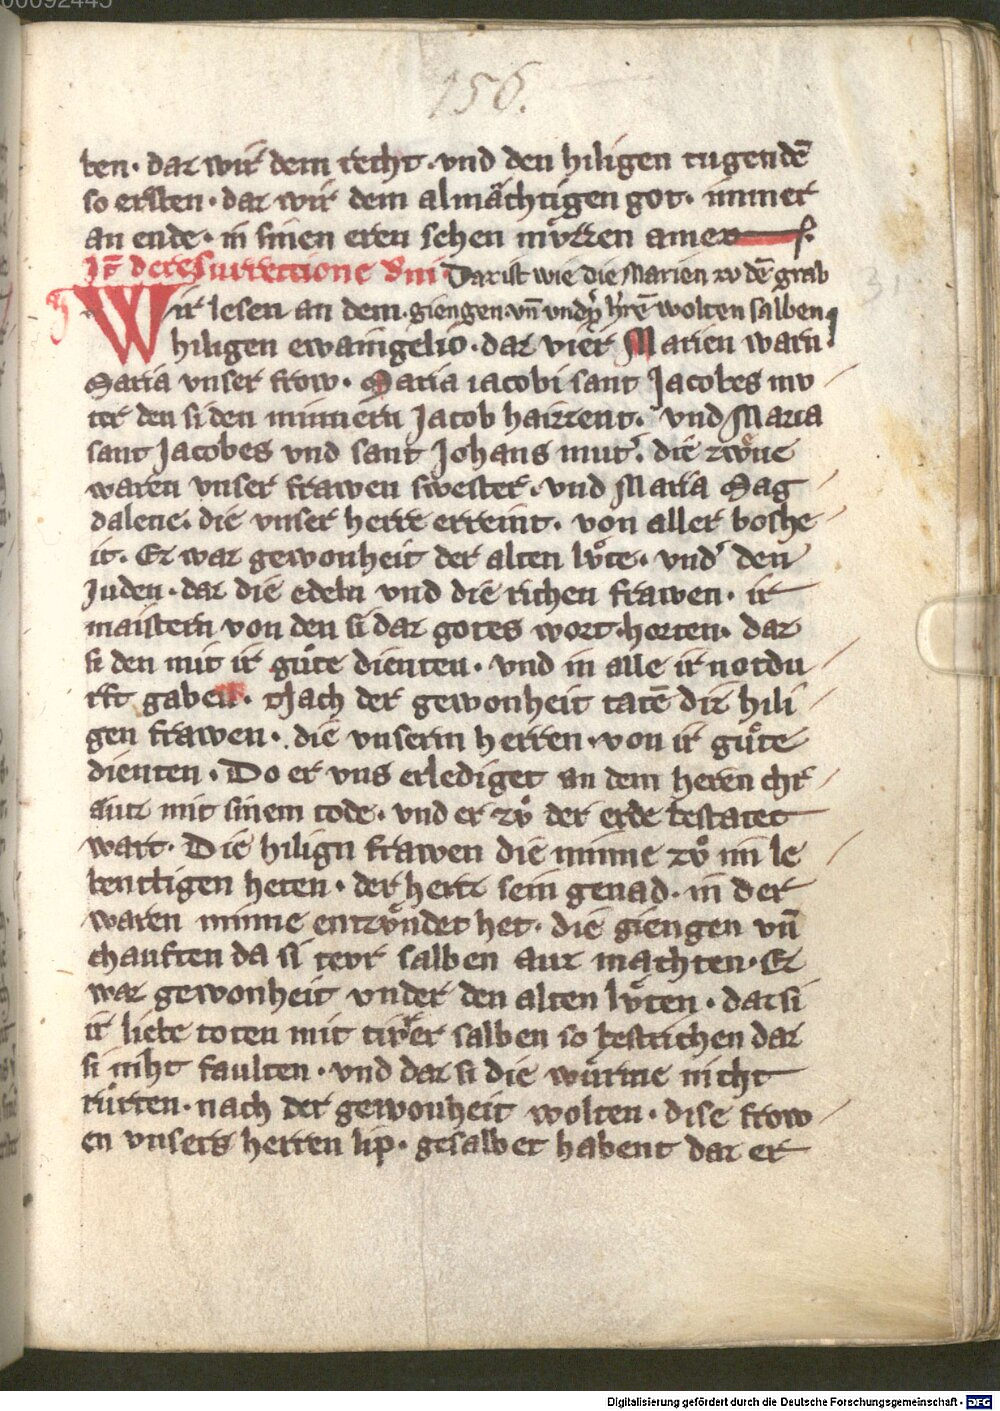 156.
ben · daz wir dem recht · vnd den hiligen tugendē
so ersten · daz wir dem almåchtigen got · immer
an ende · in sinen eren sehen mv̊zzen amen
It̄ de resurrectione dn̄i Daz ist wie die Marien zv dē grab
Wir lesen an dem · giengen · vn̄ vnd h'rē wolten salben
hiligen ewaingelio · daz vier Marien warn
Maria vnser frow · Maria iacobi sant Jacobes mv
ter den si den minnern Jacob haizzent · vnd Maria
sant Jacobes vnd sant Johans mut' die zwůne
waren vnser frawen swester · vnd Maria Mag
dalene · die vnser herre erreint · von aller boshe
it · Ez waz gewonheit der alten lv̊te · vnd' den
Juden · daz die edeln vnd die richen frawen · ir
maistern von den si daz gotes wort · horten · daz
si den mit ir gůte dienten · vnd in alle ir notdu
rft gaben · Nach der gewonheit tatē die hili
gen frawen · die vnserm herren · von ir gůte
dienten · Do er vns erlediget an dem heren chr
åutz mit sinem tode · vnd er zv̊ der erde bestatet
wart · Die hilign frawen die minne zv̊ im le
bentigen heten · der herre sein genad · in der
waren minne entzv̊ndet het · die giengen vn̄
chauften da si tevr salben auz machten · Ez
waz gewonheit vnder den alten lv̊ten · daz si
ir liebe toten mit tivrer salben so bestrichen daz
si niht faulten · vnd daz si die wůrme nicht
růrten · nach der gewonheit wolten · dise frow
en vnsers herren lip · gesalbet habent daz er
Digitalisierung gefördert durch die Deutsche Forschungsgemeinschaft - DFG